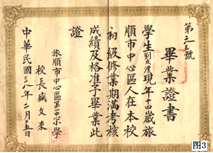 畢業證書
學生劉
現年十四歲旅
順市中心區人在本校
初級修業期滿考核
成績及格准予畢業此
證
旅順市中心區第一小學
校長盛文
中華民國三八年二月十五日
图3